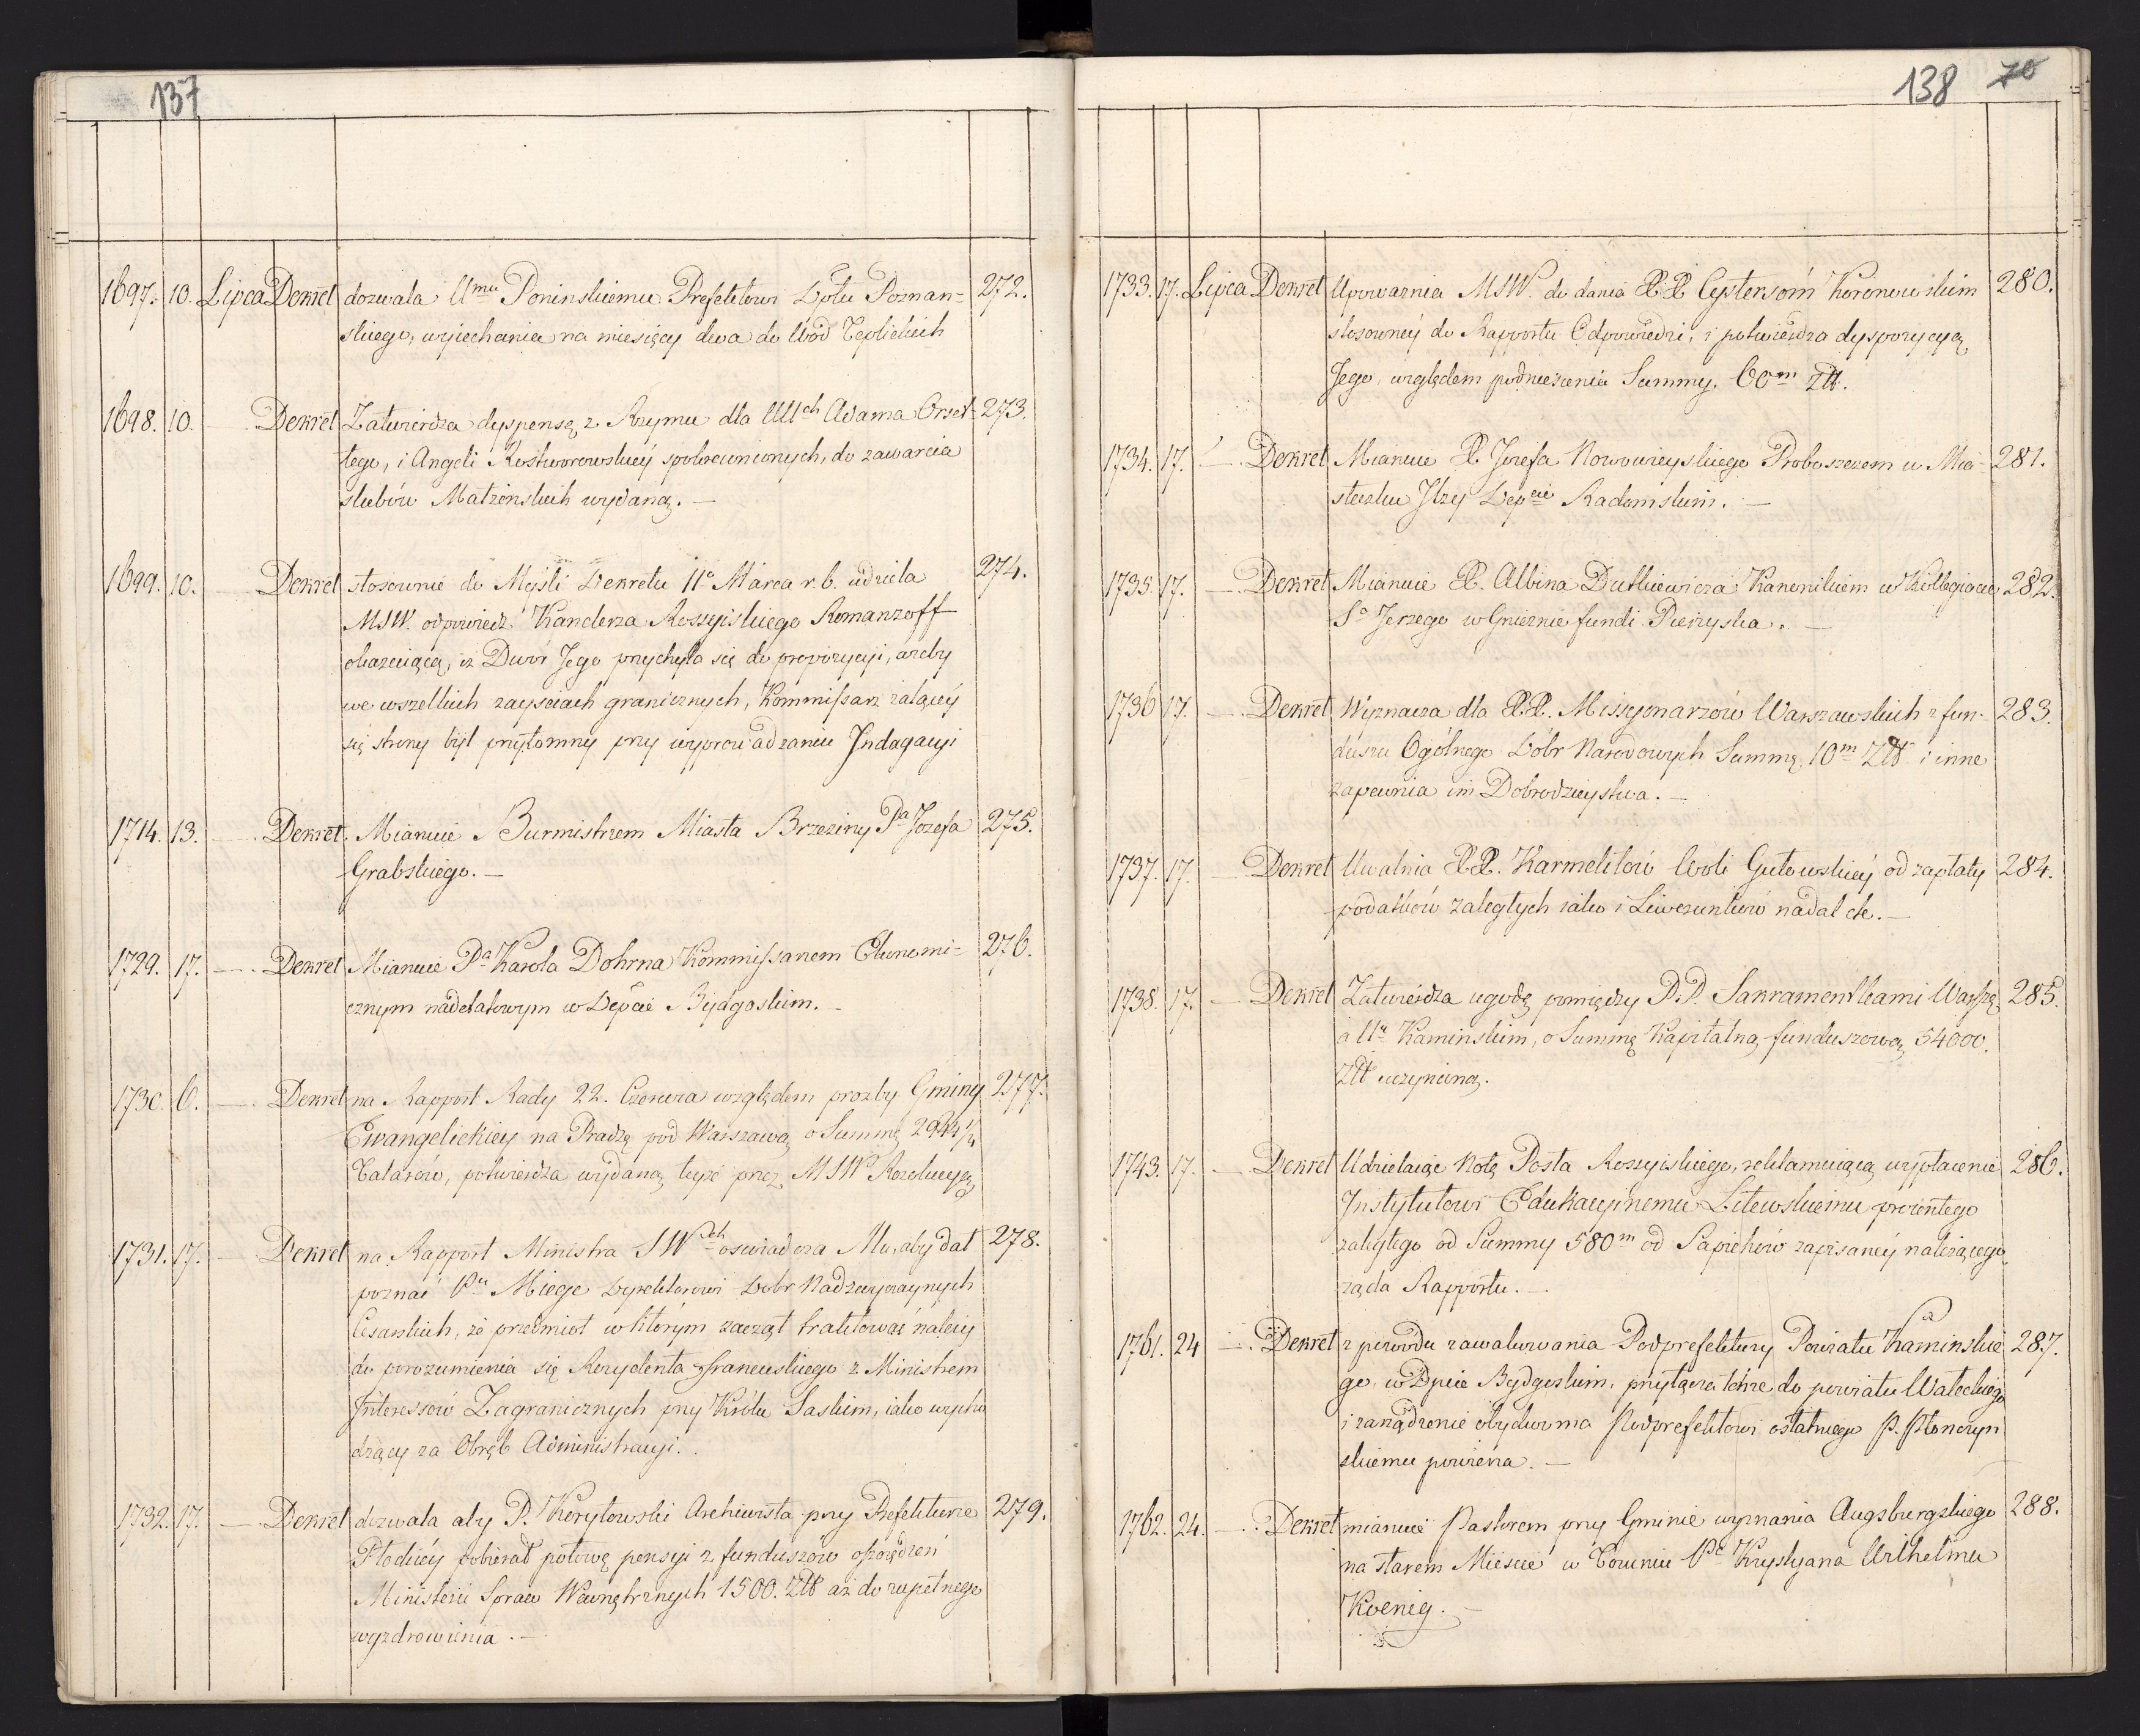 137
1697. 10. Lipca Dekret dozwala Umu Poninskiemu Prefektowi Dptu Poznan= 272.
skiego, wyiechania na miesięcy dwa do Wód Teplickich
1698. 10. — Dekret Zatwierdza dyspensę z Rzymu dla UUch Adama Orset= 273.
tego, i Angeli Rostworowskiey spokrewnionych, do zawarcia
slubów Małżenskich wydaną. —
1699. 10. — Dekret stosownie do Myśli Dekretu 11o Marca r. b. udziela 274.
MSW. odpowiedz Kanclerza Rossyiskiego Romanzoff
okazuiącą, iż Dwór Jego przychyla się do propozycyi, ażeby
we wszelkich zayściach granicznych, Kommissarz żalącey
się strony był przytomny przy wyprowadzaniu Indagacyi
1714. 13. — Dekret. Mianuie Burmistrzem Miasta Brzeziny Pa Jozefa 275.
Grabskiego. —
1729. 17. — Dekret Mianuie Pa Karola Dohrna Kommissarzem Ekonomi= 276.
cznym nadetatowym w Depcie Bydgoskim. —
1730. 6. — Dekret na Rapport Rady 22. Czerwca względem prozby Gminy 277.
Ewangelickiey na Pradze pod Warszawą o Summę 2944 1/4
Talarów, potwierdza wydaną teyże przez MSW Rezolucyą
1731. 17. — Dekret na Rapport Ministra SWch oswiadcza Mu, aby dał 278.
poznać Pu Miege Dyrektorowi Dobr Nadzwyczaynych
Cesarskich, że przedmiot w którym zaczął traktować należy
do porozumienia się Rezydenta Francuskiego z Ministrem
Interessów Zagranicznych przy Królu Saskim, iako wycho
dzący za Obręb Administracyi.
1732. 17. — Dekret dozwala aby P. Korytowski Archiwista przy Prefekturze 279.
Płockiey pobierał połowę pensyi z funduszów oszczędzeń
Ministerii Spraw Wewnętrznych 1500. Złł aż do zupełnego
wyzdrowienia. —
138 70
1733. 17. Lipca Dekret Upoważnia MSW. do dania XX Cystersóm Koronowskim 280.
stosowney do Rapportu Odpowiedzi, i potwierdza dyspozycyą
Jego, względem podniesienia Summy. 60m Złł.
1734. 17. — Dekret Mianuie X Jozefa Nowowieyskiego Proboszczem w Mia= 281.
steczku Jłży Depcie Radomskim. —
1735. 17. — Dekret Mianuie X. Albina Dutkiewicza Kanonikiem w Kollegiacie 282.
So Jerzego w Gnieznie fundi Pierzyska. —
1736 17. — Dekret Wyznacza dla XX. Missyonarzów Warszawskich z fun= 283.
duszu Ogólnego Dóbr Narodowych Summę 10m Złł i inne
zapewnia im Dobrodzieystwa. —
1737. 17. — Dekret Uwalnia XX. Karmelitów Woli Gutowskiey od zapłaty 284.
podatków zaległych iako i Liwerunków nadal etc. —
1738. 17. — Dekret Zatwierdza ugodę pomiędzy P.P. Sakramentkami Warszą 285.
a Um Kaminskim, o Summę Kapitalną funduszową 54000.
Złł uczynioną.
1743. 17. — Dekret Udzielaiąc Notę Posła Rossyiskiego, reklamuiącą wypłacenie 286.
Instytutowi Edukacyinemu Litewskiemu procentego
zaległego od Summy 580m od Sapiehów zapisaney należącego,
żąda Rapportu. —
1761. 24 — Dekret z powodu zawakowania Podprefektury Powiatu Kaminskie 287.
go, w Dpcie Bydgoskim, przyłącza tenże do powiatu Wałeckiego
i zarządzenie obydwoma Podprefektowi ostatniego P. Płonczyn
skiemu powierza. —
1762. 24. — Dekret mianuie Pastorem przy Gminie wyznania Augsburgskiego 288.
na starem Miescie w Toruniu Pa Krystyana Wilhelma
Koenig. —